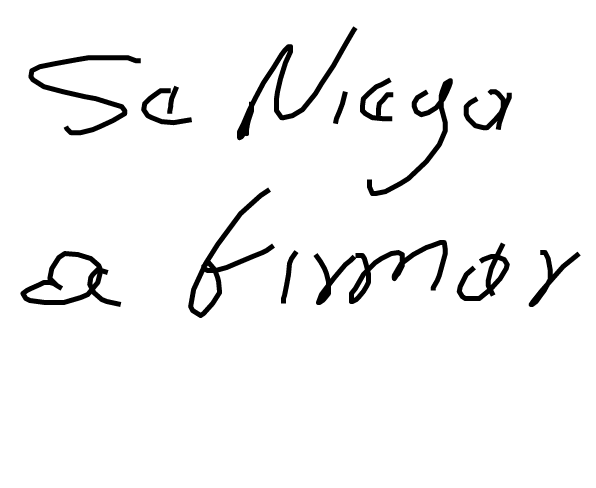 Se Niega
a firmar